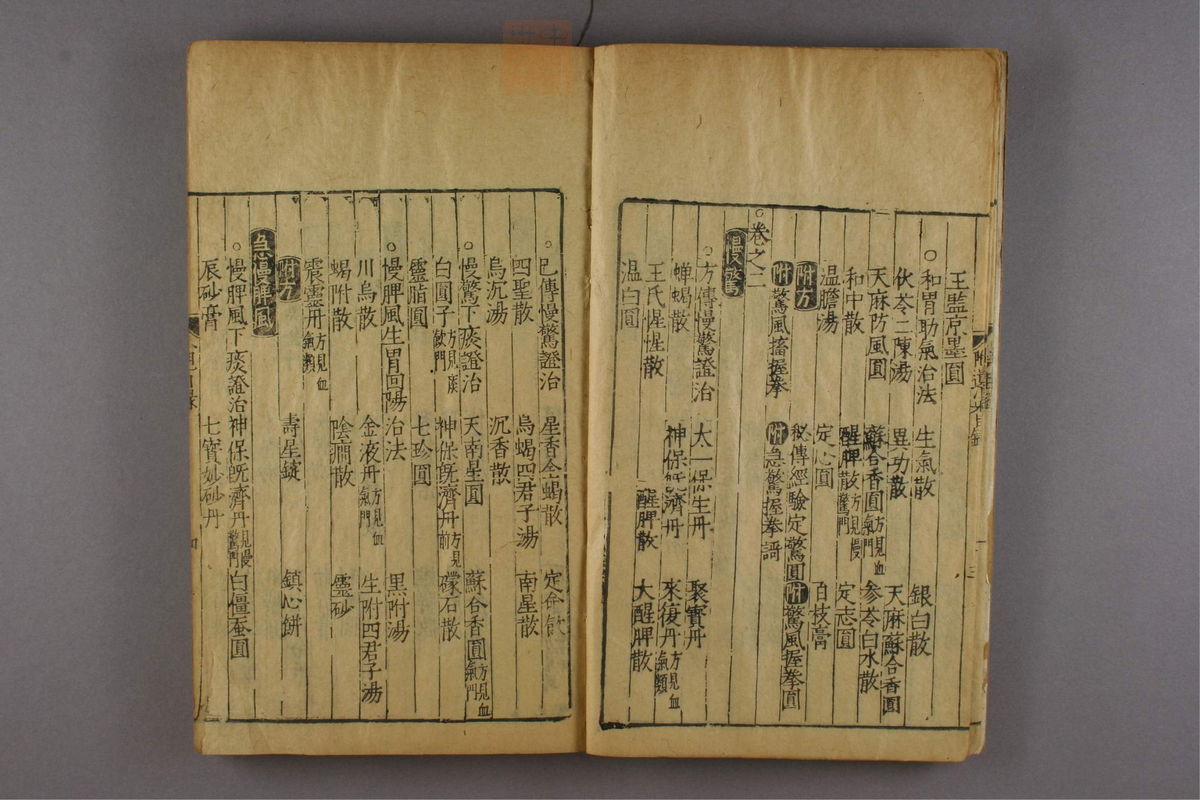 王監京墨圓
○和胃助氣治法　生氣散　銀白散
伏苓二陳湯　異功散　天麻蘇合香圓
天麻防風圓　蘇合香圓方見血氣門　參苓白水散
和中散　醒脾散方見慢驚門　定志圓
温膽湯　定心圓　百枝膏
附方　秘傳經驗定驚圓　附驚風握拳圓
附驚風搐握拳　附急驚握拳謌
○卷之二
慢驚
○方傳慢驚證治　太一保生丹　聚寶丹
蝉蝎散　神保既濟丹　來復丹方見血氣類
王氏惺惺散　醒脾散　大醒脾散
温白圓
○已傳慢驚證治　星香全蝎散　定命飲
四聖散　烏蝎四君子湯　南星散
烏沉湯　沉香散
○慢驚下痰證治　天南星圓　蘇合香圓方見血氣門
白圓子方見痰飲門　神保既濟丹方見前　礞石散
靈脂圓　七珍圓
○慢脾風生胃回陽治法　黑附湯
川烏散　金液丹方見血氣門　生附四君子湯
蝎附散　陰癇散　靈砂
震靈丹方見血氣類
附方　壽星錠　鎮心餅
急慢脾風
○慢脾風下痰證治　神保既濟丹見慢驚門　白僵蚕圓
辰砂膏　七寶妙砂丹